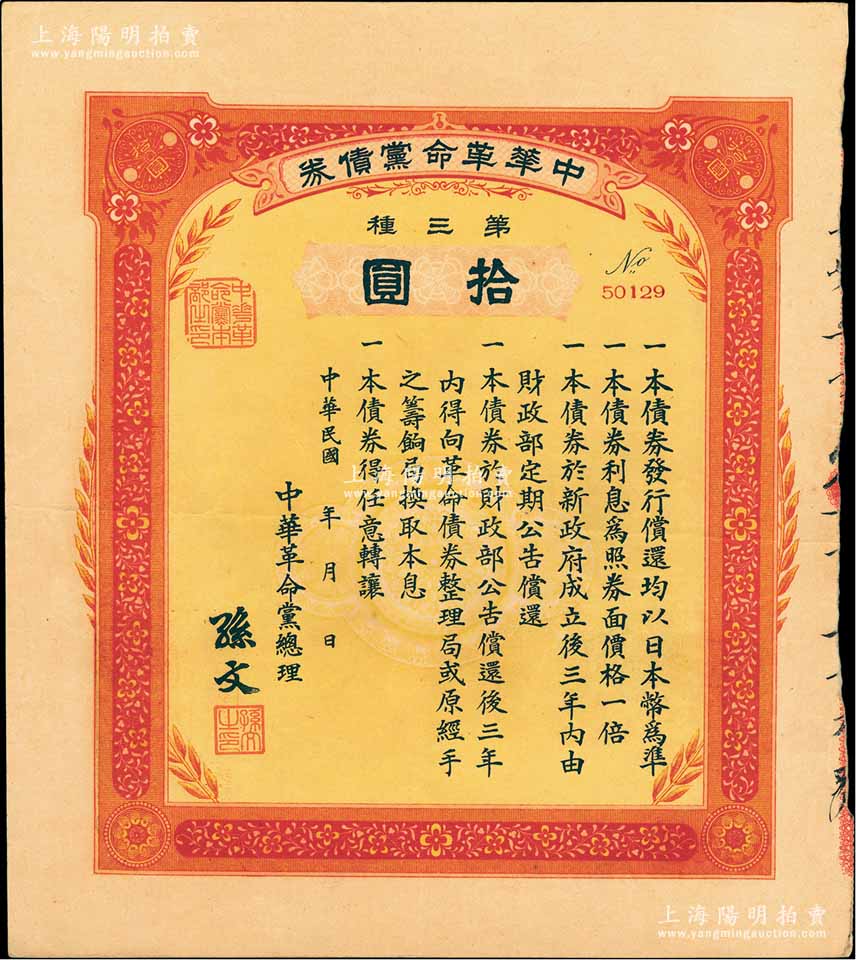 上海陽明拍賣
www.yangmingauction.com
中華革命黨債券
第三種
拾圓
No
50129
中華革命黨本部之印
一本債券發行償還均以日本幣爲準
一本債券利息爲照券面價格一倍
一本債券於新政府成立後三年内由
財政部定期公告償還
一本債券於財政部公告償還後三年
内得向革命債券整理局或原經手
之籌餉局換取本息
一本債券得任意轉讓
中華民國 年 月 日
中華革命黨總理
孫文
孫文之印
上海陽明拍賣
www.yangmingauction.com
上海陽明拍賣
www.yangmingauction.com